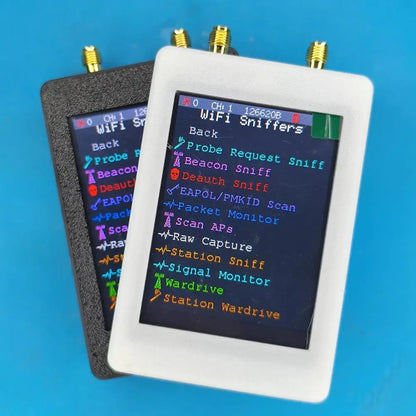 0 CH: 1 126620B
WiFi Sniffers
Back
Probe Request Sniff
Beacon Sniff
Deauth Sniff
EAPOL/PMKID Scan
Packet Monitor
Scan APs
Raw Capture
Station Sniff
Signal Monitor
Wardrive
Station Wardrive
0 CH: 1
WiFi Sn
Back
Probe
Beacon
Deaut
EAPOL
Packe
Sca
Raw
Sta
Sig
War
Stat